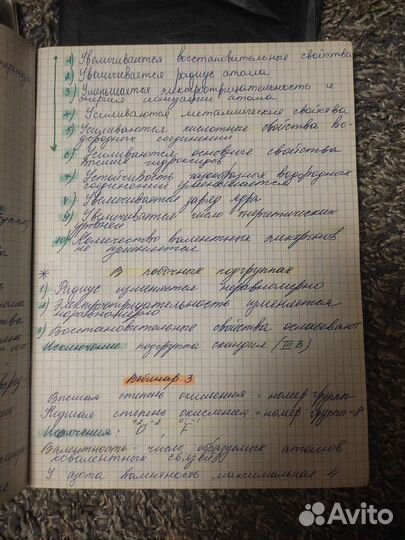 1) Увеличиваются восстановительные свойства
2) Увеличивается радиус атома
3) Уменьшается электроотрицательность и
энергия ионизации атома
4) Усиливаются металлические свойства
5) Усиливаются кислотные свойства во-
дородных соединений
6) Усиливаются основные свойства
высших гидроксидов
7) Устойчивость газообразных водородных
соединений уменьшается
8) Увеличивается заряд ядра
9) Увеличивается число энергетических
уровней
10) Количество валентных электронов
не изменяется
* В побочных подгруппах
1) Радиус изменяется неравномерно
2) Электроотрицательность изменяется
неравномерно
3) Восстановительные свойства ослабевают
Исключение: подгруппа скандия (III B)
Вебинар 3
Высшая степень окисления = номер группы
Низшая степень окисления = номер группы - 8
O F
Валентность - число образуемых атомом
ковалентных связей
У азота валентность максимальная 4
Avito